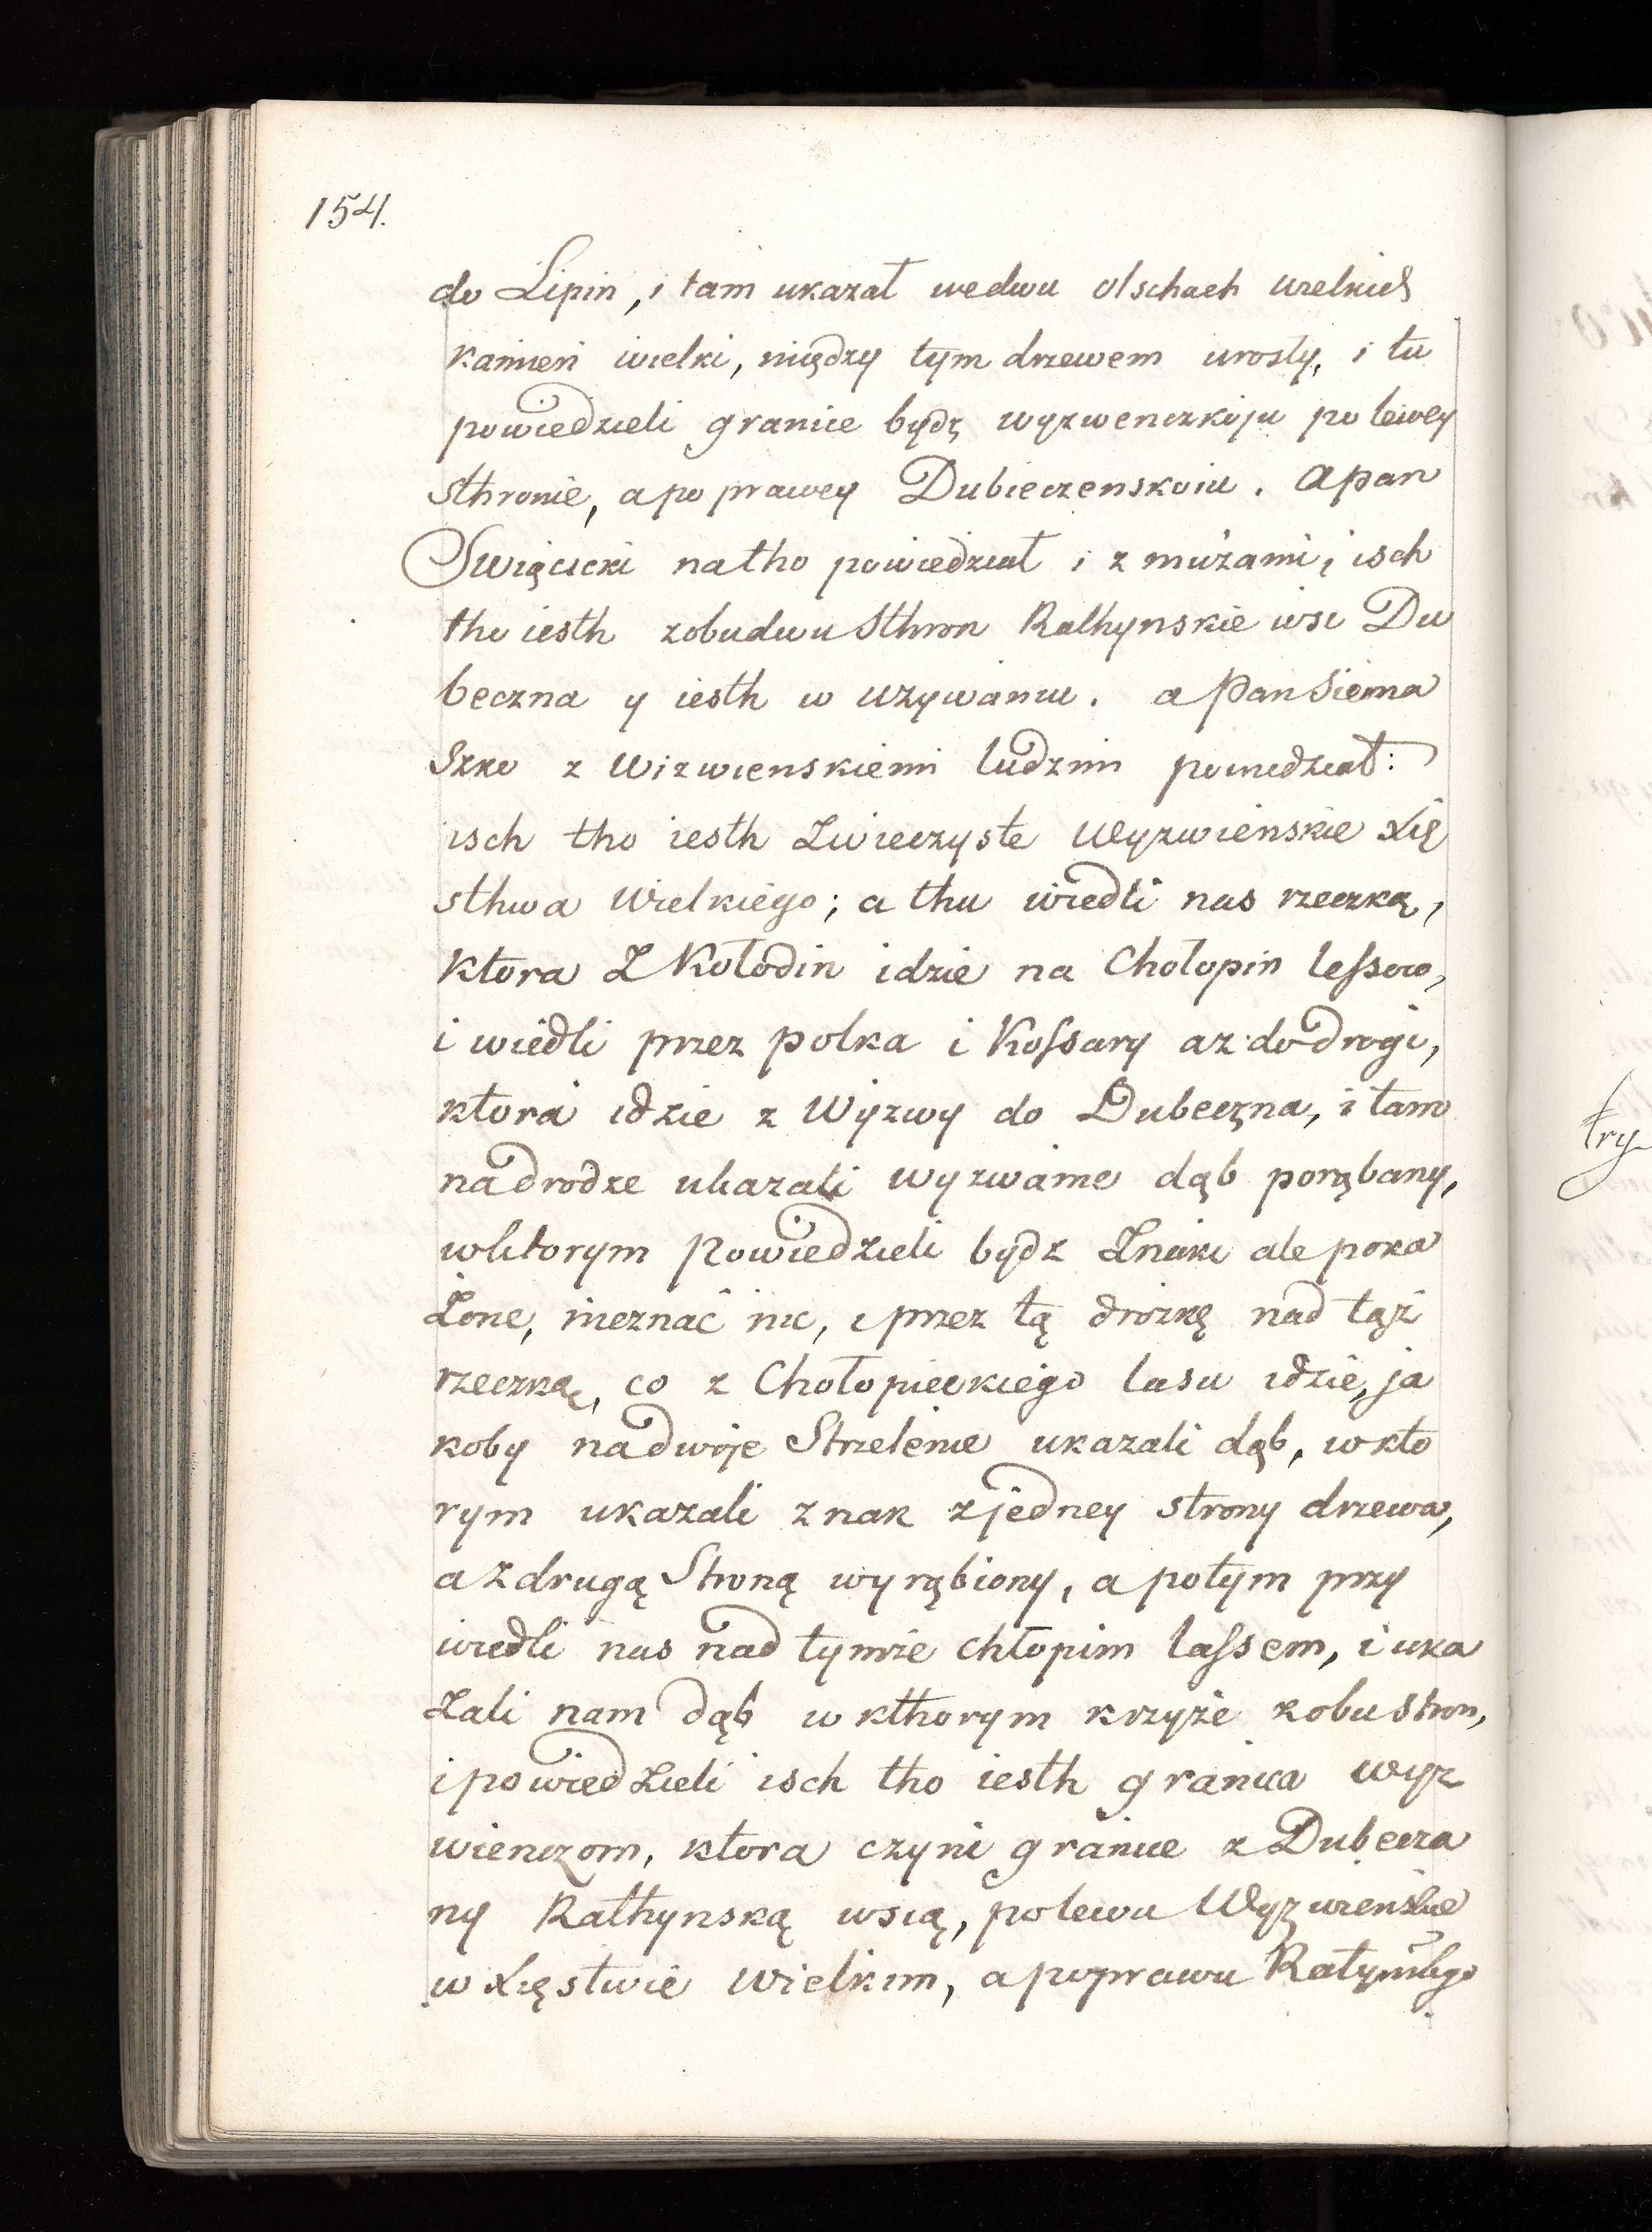 154.
do Lipin, i tam ukazał wedwu olschach wielkich
kamień wielki, między tym drzewem urosły, i tu
powiedzieli granice bydź wyzwenczkoju po lewey
sthronie, a po prawey Dubieczenskoiu. A pan
Swięcicki natho powiedział i z mużami, isch
tho iesth zobudwu Sthron Rathynskie wsi Du
beczna y iesth w uzywaniu. a Pan Siema
Szko z Wizwienskiemi ludzmi powiedział:
isch tho iesth Zwieczyste Wyzwienskie Xię
sthwa Wielkiego; a thu wiedli nas rzeczką,
ktora Z Kołodin idzie na Chołopin lessow,
i wiedli przez polka i Kossary az do drogi,
ktora idzie z Wyzwy do Dubeczna, i tam
nadrodze ukazali wyzwanie dąb porąbany,
wktorym powiedzieli bydz Znaki ale poka
Żone, nieznać nic, i przez tą drożkę nad tąż
rzeczką, co z Chołopieckiego lasu idzie, ja
koby nadwoje Strzelenie ukazali dąb, w kto
rym ukazali znak z jedney strony drzewa,
a z drugą Stroną wyrąbiony, a potym przy
wiedli nas nad tymże chłopim lassem, i uka
Zali nam dąb w kthorym krzyże z obu stron,
i powiedzieli isch tho iesth granica wyz
wienczom, ktora czyni granice z Dubecza
ny Rathynską wsią, polewu Wyzwienskie
w Xięstwie Wielkim, a poprawu Ratynskego
try